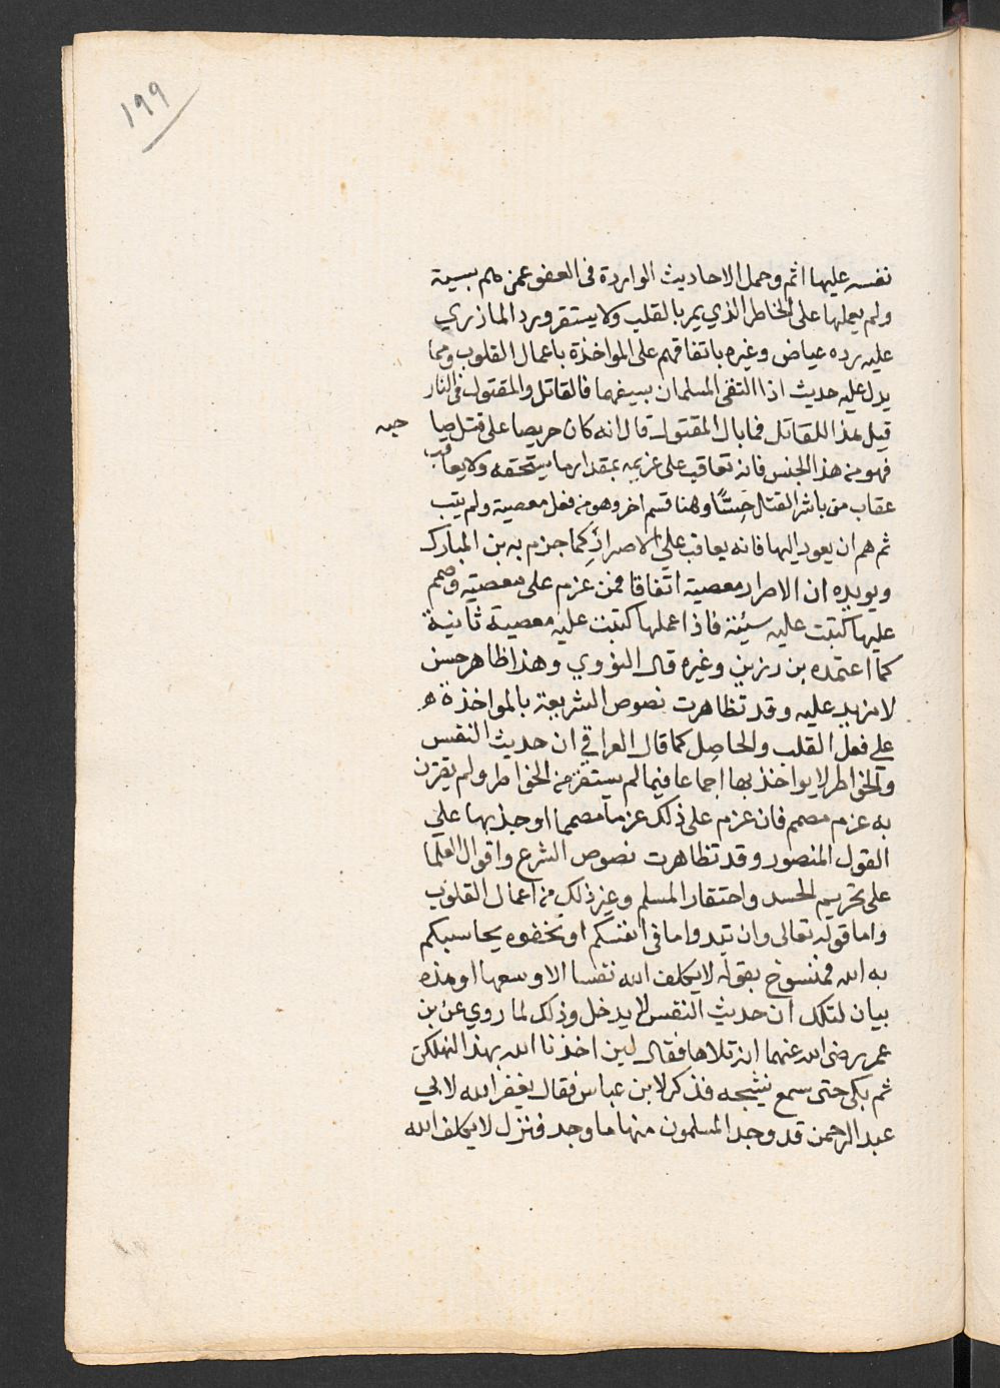 ١٩٩
نفسه عليها اثم وحمل الاحاديث الواردة فى العفو عمن هم بسيئة
ولم يعملها على الخاطر الذي يمر بالقلب ولا يستقر ورد المازري
عليه رده عياض وغيره باتفاقهم على المواخذة باعمال القلوب ومما
يدل عليه حديث اذا التقى المسلمان بسيفهما فالقاتل والمقتول فى النار
قيل هذا القاتل فما بال المقتول قال انه كان حريصا على قتل صا حبه
فهو من هذا الجنس فانه تعاقب على عزيمه بمقدار ما يستحقه ولا يعاقب
عقاب من باشر القتل حِسًّا وهنا قسم اخر وهو من فعل معصية ولم يتب
ثم هم ان يعود اليها فانه يعاقب على الاصرار كما جزم به بن المبارك
ويويده ان الاصرار معصية اتفاقا فمن عزم على معصيته وصمم
عليها كتبت عليه سيئة فاذا عملها كتبت عليه معصية ثانية
كما اعتمده بن رزين وغيره قال النووي وهذا ظاهر حسن
لا مزيد عليه وقد تظاهرت نصوص الشريعة بالمواخذة ه
على فعل القلب والحاصل كما قال العراقي ان حديث النفس
والخواطر لا يواخذ بها اجماعا فيما لم يستقر من الخواطر ولم يقترن
به عزم مصمم فان عزم على ذلك عزما مصمما اوخذ بها على
القول المنصور وقد تظاهرت نصوص الشرع واقوال العلما
على تحريم الحسد واحتقار المسلم وغير ذلك من اعمال القلوب
واما قوله تعالى وان تبدوا ما فى انفسكم او تخفوه يحاسبكم
به الله فمنسوخ بقوله لا يكلف الله نفسا الا وسعها او هذه
بيان لتلك ان حديث النفس لا يدخل وذلك لما روي عن بن
عمر رضى الله عنهما انه تلاها فقال لين اخذنا الله بهذا لنهلكن
ثم بكى حتى سمع نشيجه فذكر لابن عباس فقال يغفر الله لابي
عبد الرحمن قد وجد المسلمون منها ما وجد فنزل لا يكلف الله